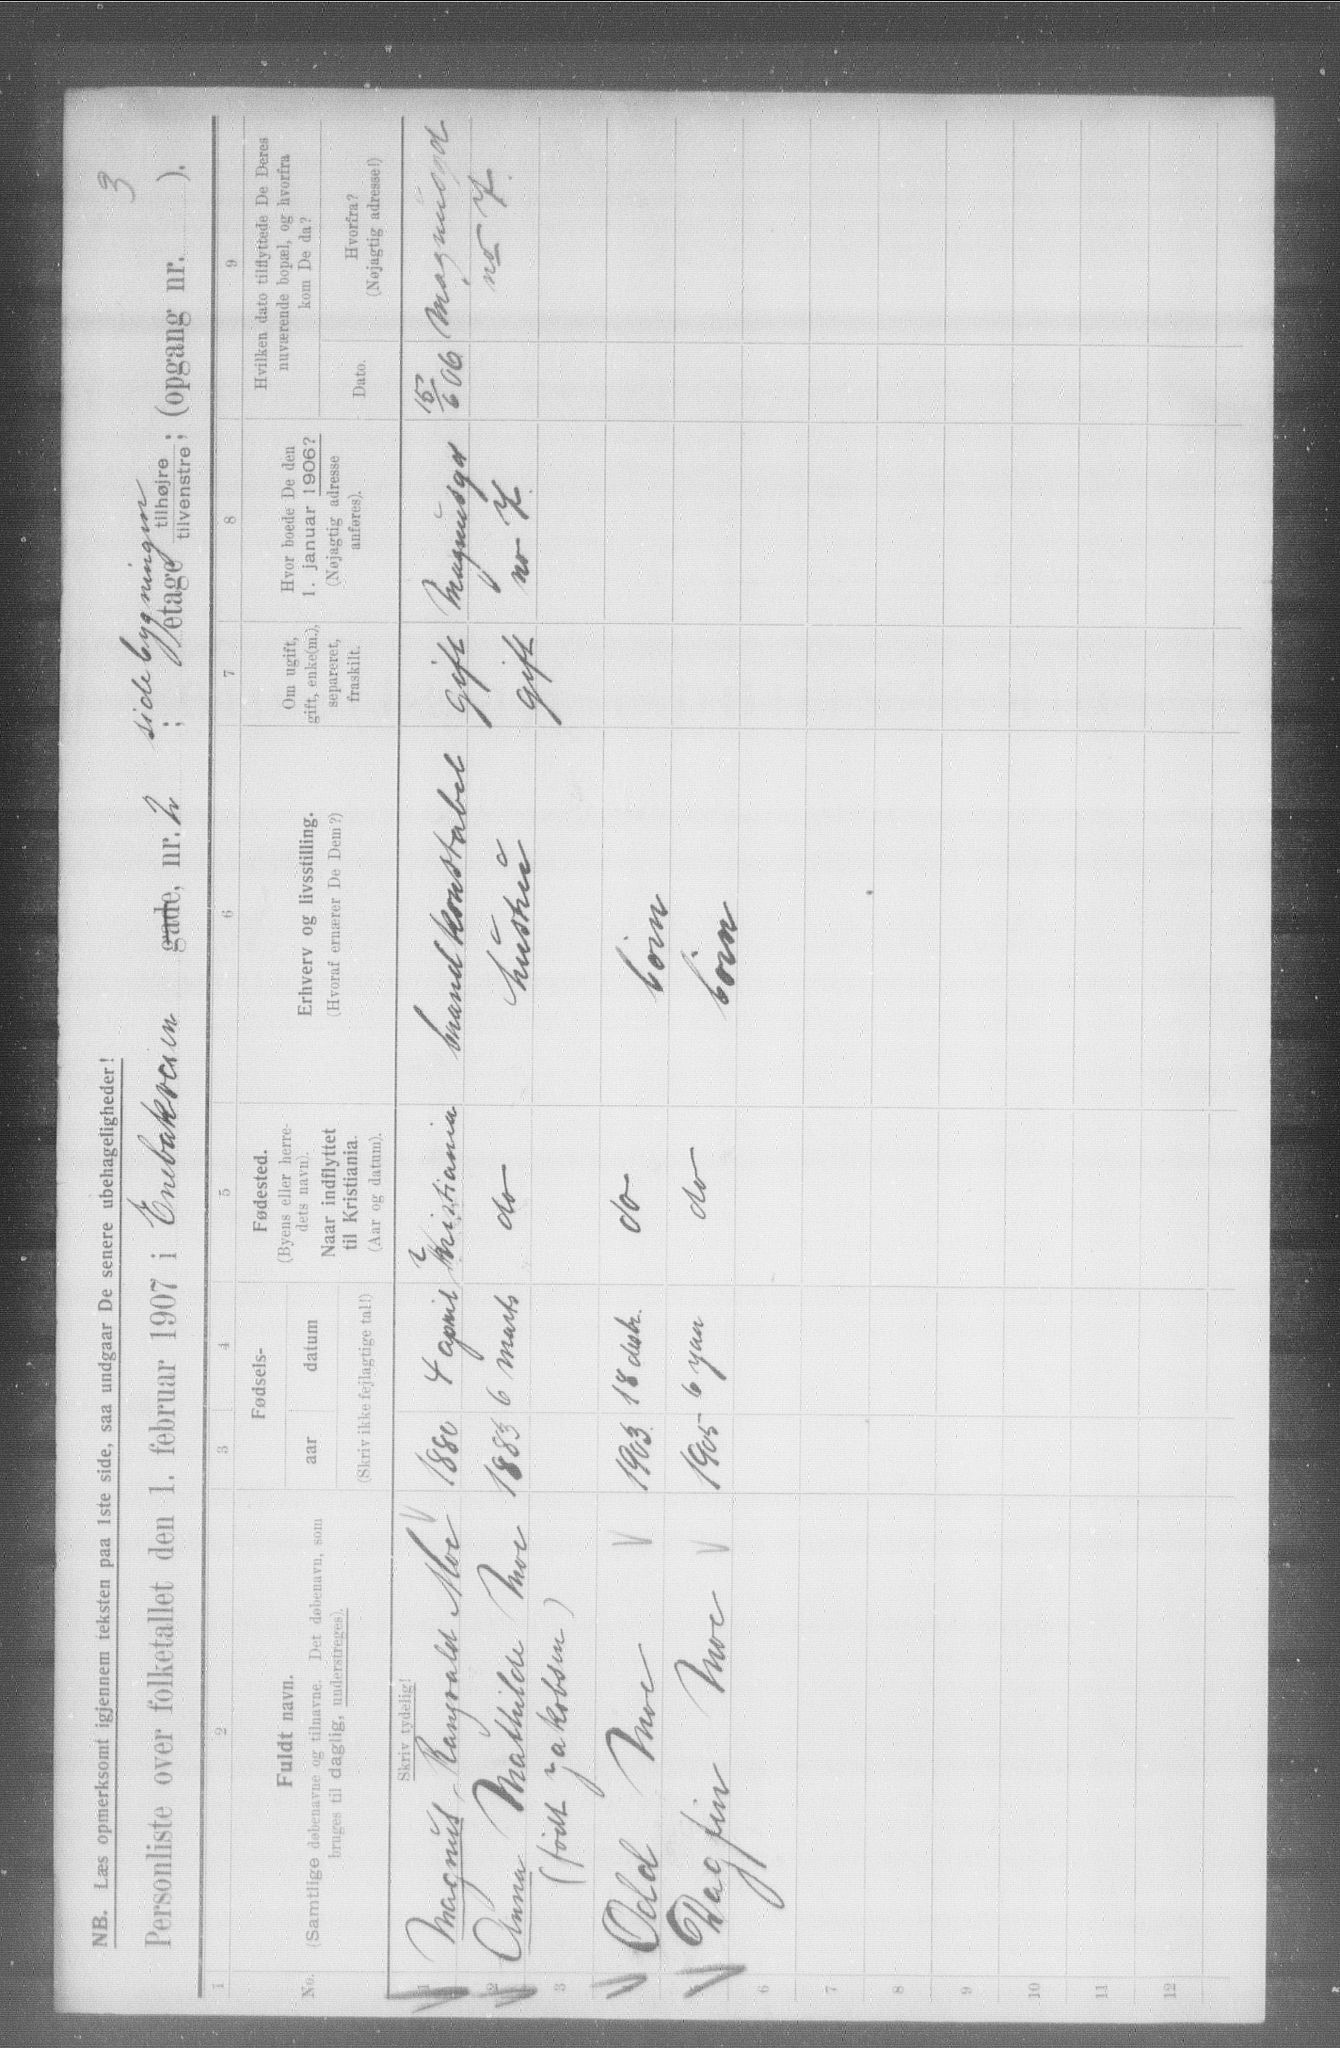 3
NB. Læs opmerksomt igjennem teksten paa 1ste side, saa undgaar De senere ubehageligheder!
sidebygningen
Personliste over folketallet den 1. februar 1907 i Enebakveien gade, nr. 2 ; etage tilhøjre tilvenstre; (opgang nr. ).
1 2 3 4 5 6 7 8 9
No.
Fuldt navn.
(Samtlige døbenavne og tilnavne. Det døbenavn, som
bruges til daglig, understreges).
Fødsels-
aar datum
(Skriv ikke fejlagtige tal!)
Fødested.
(Byens eller herre-
dets navn).
Naar indflyttet
til Kristiania.
(Aar og datum).
Erhverv og livsstilling.
(Hvoraf ernærer De Dem?)
Om ugift,
gift, enke(m.),
separeret,
fraskilt.
Hvor boede De den
1. januar 1906?
(Nøjagtig adresse
anføres).
Hvilken dato tilflyttede De Deres
nuværende bopæl, og hvorfra
kom De da?
Dato.
Hvorfra?
(Nøjagtig adresse!)
Skriv tydelig!
1 Magnus Rangvald Moe 1880 4 april Kristiania brandkonstabel gift Magnusgd 15/6 06 Magnusgd
2 Anna Mathilde Moe 1883 6 marts do hustru gift no 7 no 7
3 (født Jakobsen)
Odd Moe 1903 18 desbr. do børn
Dagfin Moe 1905 6 jan do børn
6
7
8
9
10
11
12